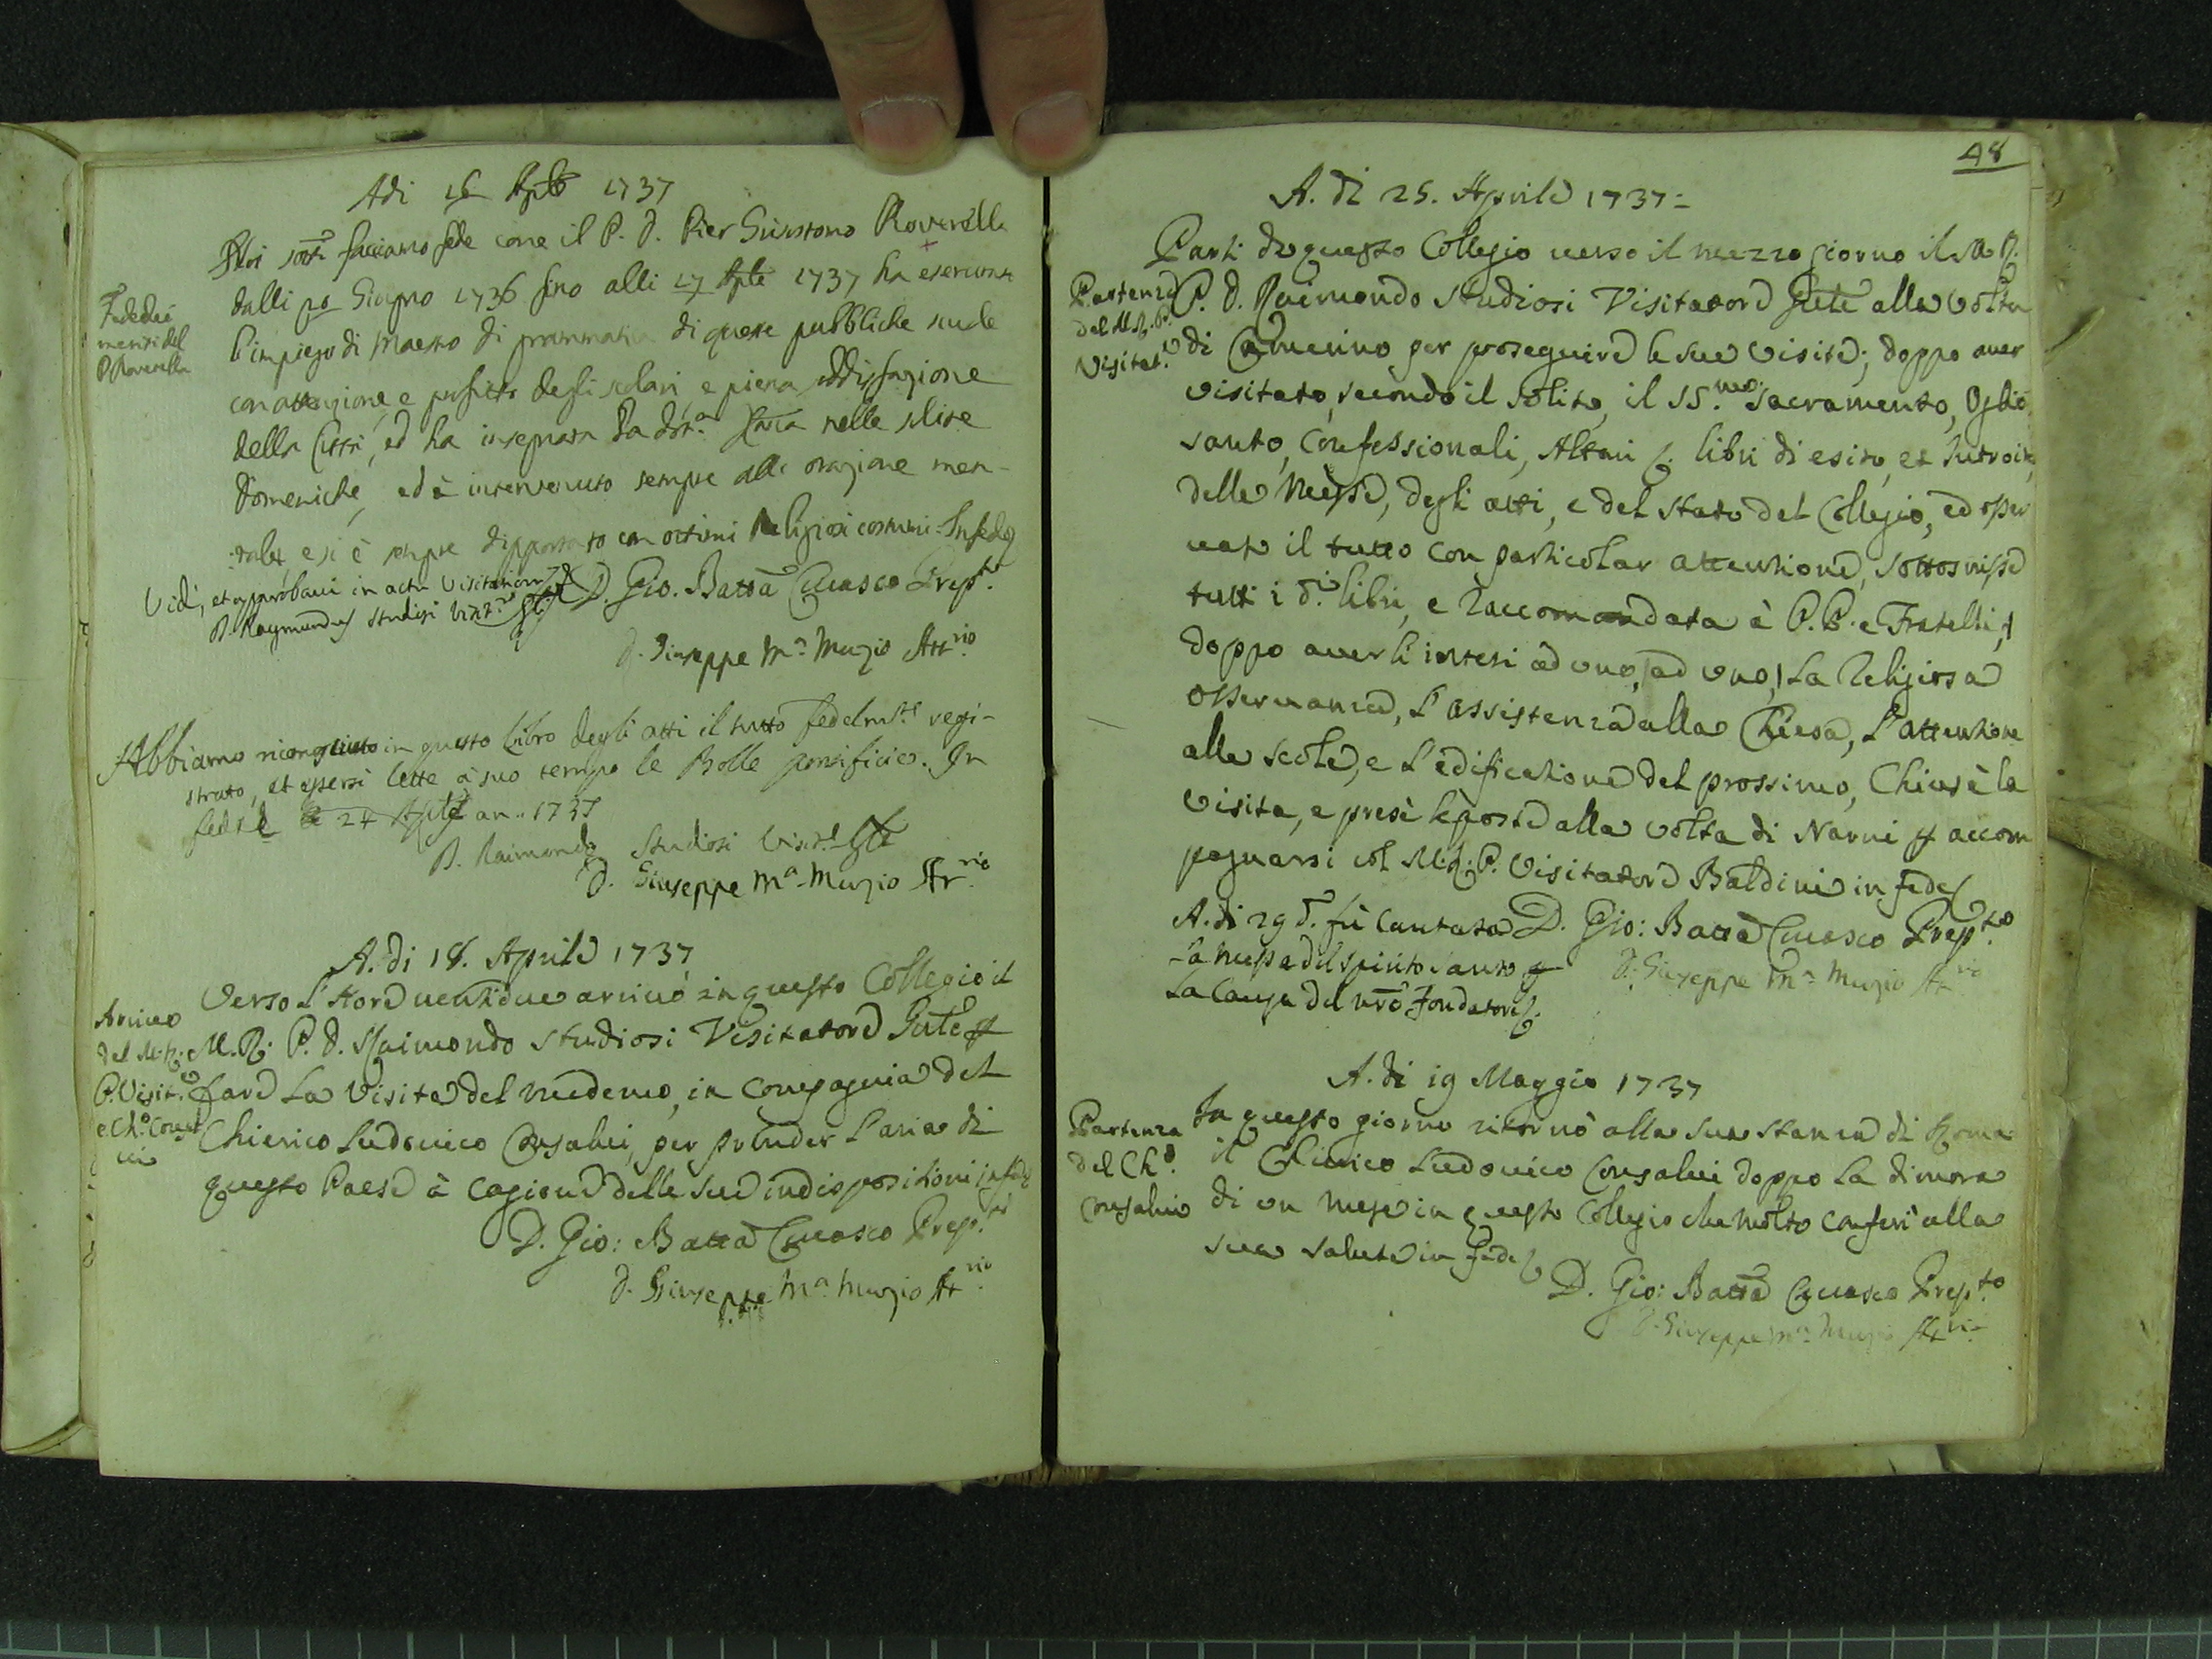 Adi 16 Aprile 1737
Noi sotti facciamo fede come il P. D. Pier Giustono Roverella
dalli po Giugno 1736 fino alli 17 Aprile 1737 ha esercitato
l'impiego di Maestro di grammatica di queste pubbliche scuole
con attenzione, e profitto degli scolari, e piena soddisfazione
della Città, ed ha insegnata la dotta. Xtiana nelle solite
Domeniche, ed è intervenuto sempre alla orazione men-
tale, e si è sempre dipportato con ottimi Religiosi costumi. In fede
Fede dei
meriti del
P. Roverella
D. Gio. Batta Cavasco Prepto.
Vidi, et approbavi in actu Visitationis
D. Raymundus Studiosi Visitr. Glis
D. Giuseppe Ma. Muzio Attrio.
Abbiamo riconosciuto in questo Libro degli atti il tutto fedelmte regi-
strato, et essersi lette à suo tempo le Bolle pontificie. In
fede 24 Aprile an. 1737
D. Raimondo Studiosi Visitr. Gle
D. Giuseppe Ma. Muzio Attrio.
A. di 18. Aprile 1737
Verso l'Hore ventidue arrivò in questo Collegio il
M. R. P. D. Raimondo Studiosi Visitatore Gnle p
fare la Visita del medemo, in compagnia del
Chierico Ludovico Consalvi, per prender l'aria di
questo Paese à cagione delle sue indisposizioni in fede
Arrivo
del M. R.
P. Visitr.
e Cho. Consal
vi
D. Gio: Batta Cavasco Prepto.
D. Giuseppe Ma. Muzio Attrio.
48
A. di 25. Aprile 1737=
Parti da questo Collegio verso il mezzo giorno il M. R.
P. D. Raimondo Studiosi Visitatore Gnle alla volta
di Camerino per proseguire le sue visite; doppo aver
visitato, secondo il solito, il SS.mo Sacramento, Oglio
santo, Confessionali, Altari &. libri di esito, et Introito,
delle Messe, degli atti, e del stato del Collegio, ed osser
vato il tutto con particolar attentione, sottoscrisse
tutti i di. libri, e raccomandata à P. P. e Fratelli,
doppo averli intesi ad uno, ad uno, la Religiosa
osservanza, l'assistenza alla Chiesa, l'attentione
alle scole, e l'edificatione del prossimo, Chiusè la
visita, e presè le poste alla volta di Narni p accom
pagnarsi col M. R. P. Visitatore Baldini in fede
Partenza
del M. R. P.
Visitat.
A. di 29 d. fù cantata
la messa del spirito santo p
la Causa del nro Fondatore.
D. Gio: Batta Cavasco Prepto.
D. Giuseppe Ma. Muzio Attrio.
A. di 19 Maggio 1737
In questo giorno ritornò alla sua stanza di Roma
il Chierico Ludovico Consalvi doppo la dimora
di un mese in questo Collegio che molto conferì alla
sua salute in fede
Partenza
del Cho.
Consalvi
D. Gio: Batta Cavasco Prepto.
D. Giuseppe Ma. Muzio Attrio.